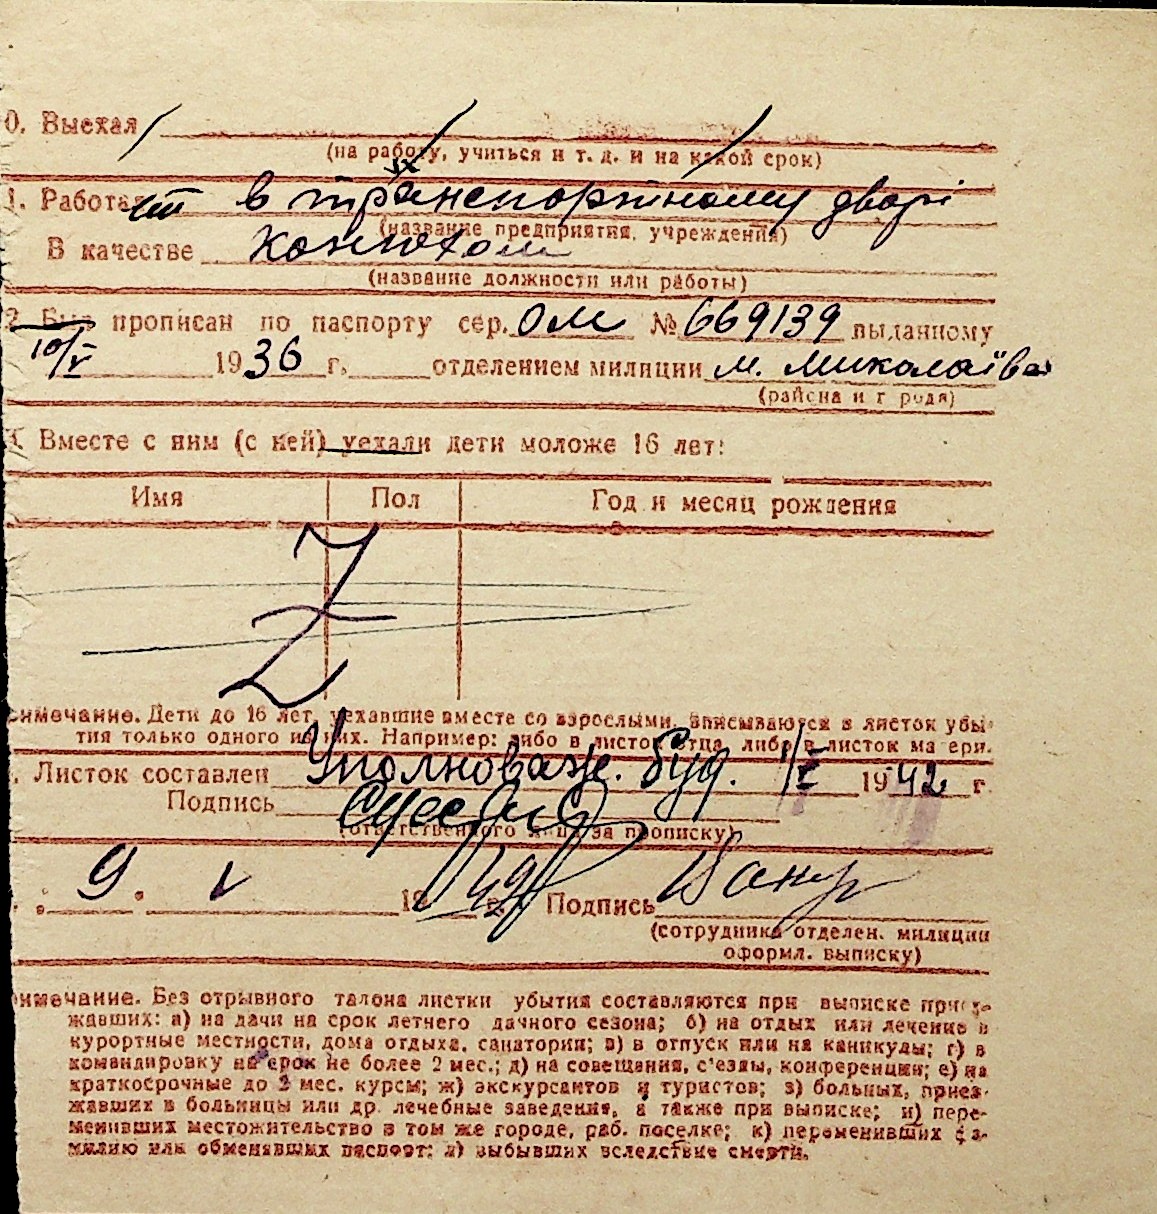 0. Выехал
(на работу, учиться и т. д. и на какой срок)
1. Работал в транспортному дворі
(название предприятия, учреждения)
В качестве конюхом
(название должности или работы)
2. Был прописан по паспорту сер. ОМ № 669139 выданному
10/V 1936 г. отделением милиции м. Миколаїва
(района и города)
Вместе с ним (с ней) уехали дети моложе 16 лет:
Имя Пол Год и месяц рождения
Z
имечание. Дети до 16 лет, уехавшие вместе со взрослыми, вписываются в листок убы-
тия только одного из них. Например: либо в листок отца, либо в листок матери.
Листок составлен Уповноваж. буд. 1942 г.
Подпись
(ответственного лица за прописку)
9. V 1942 г. Подпись
(сотрудника отделен. милиции
оформл. выписку)
имечание. Без отрывного талона листки убытия составляются при выписке приез-
жавших: а) на дачи на срок летнего дачного сезона; б) на отдых или лечение в
курортные местности, дома отдыха, санатории; в) в отпуск или на каникулы; г) в
командировку на срок не более 2 мес.; д) на совещания, с'езды, конференции; е) на
краткосрочные до 3 мес. курсы; ж) экскурсантов и туристов; з) больных, приез-
жавших в больницы или др. лечебные заведения, а также при выписке; и) пере-
менивших местожительство в том же городе, раб. поселке; к) переменивших фа-
милию или обменявших паспорт; л) выбывших вследствие смерти.